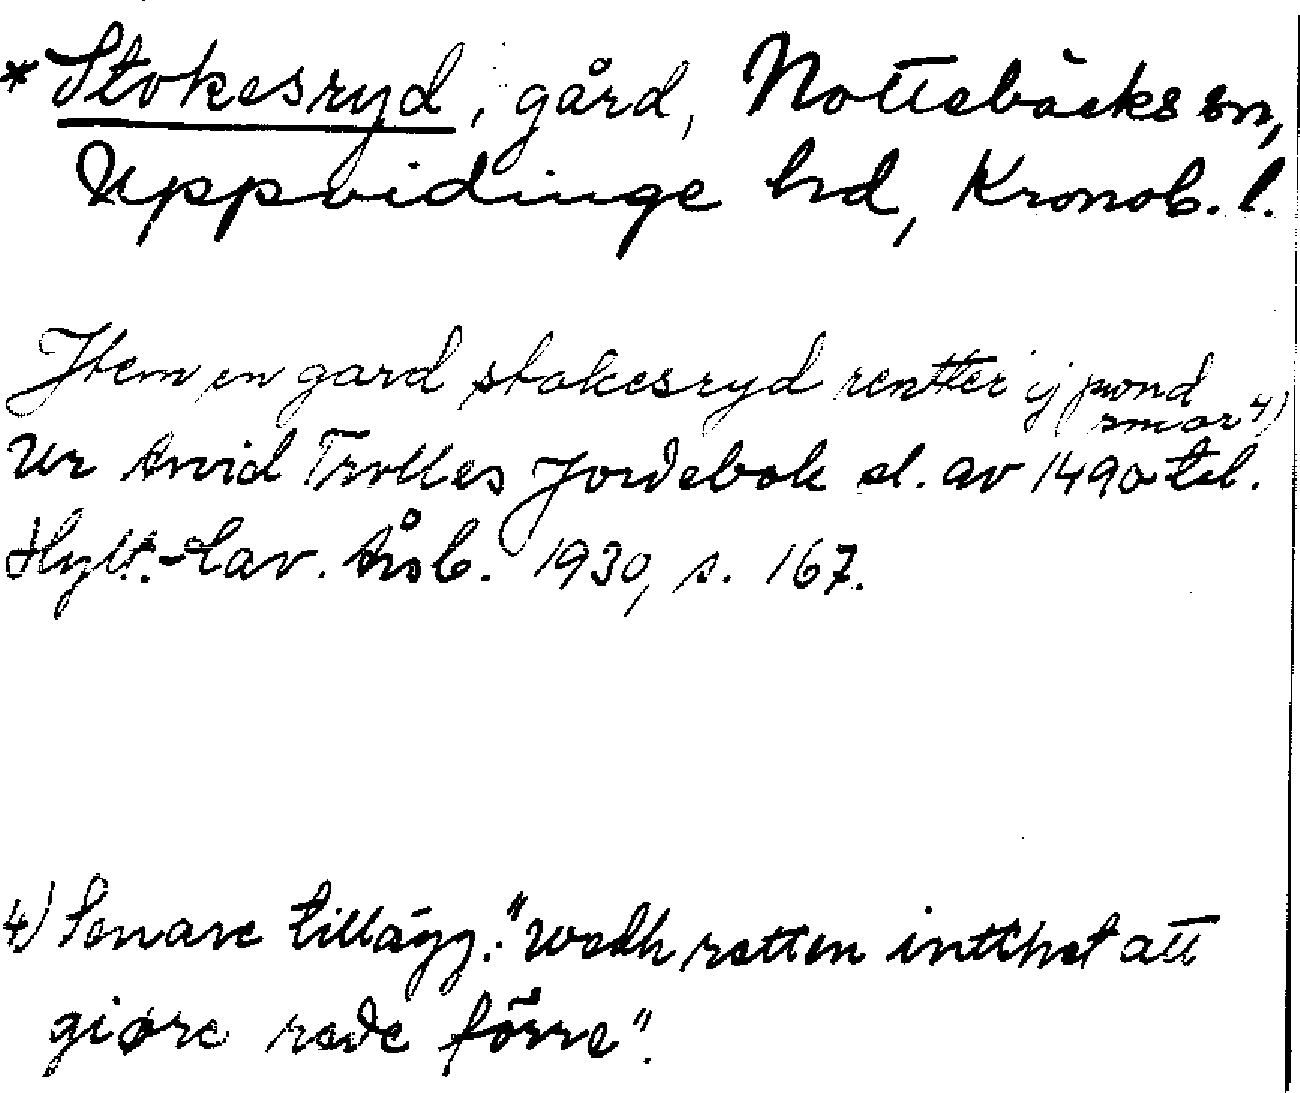 *Stokesryd, gård, Nottebäcks sn,
Uppvidinge hd, Kronob. l.
Item en gard stokesryd rentter ij pwnd
smør 4)
Ur Arvid Trolles Jordebok sl. av 1490 tal.
Hylt.-Cav. Årsb. 1930, s. 167.
4) Senare tillägg: "wedh retten intthet att
giøre rede förre".